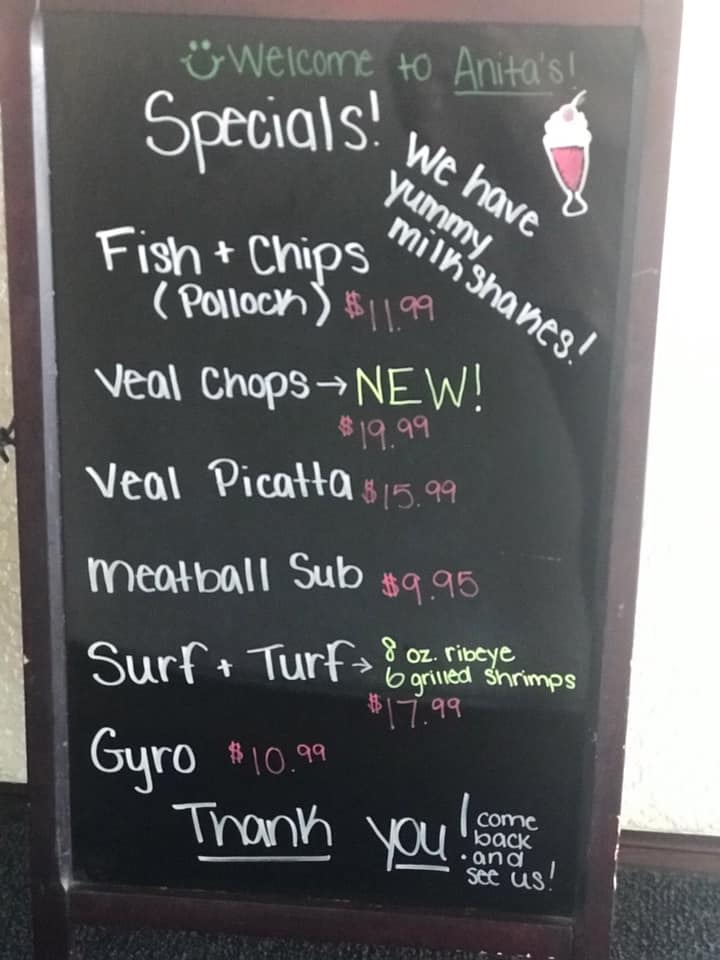 Welcome to Anita's!
Specials!
We have
yummy
milkshakes!
Fish + Chips
(Pollock) $11.99
Veal Chops → NEW!
$19.99
Veal Picatta $15.99
Meatball Sub $9.95
Surf + Turf → 8 oz. ribeye
6 grilled shrimps
$17.99
Gyro $10.99
Thank you!
come
back
and
see us!